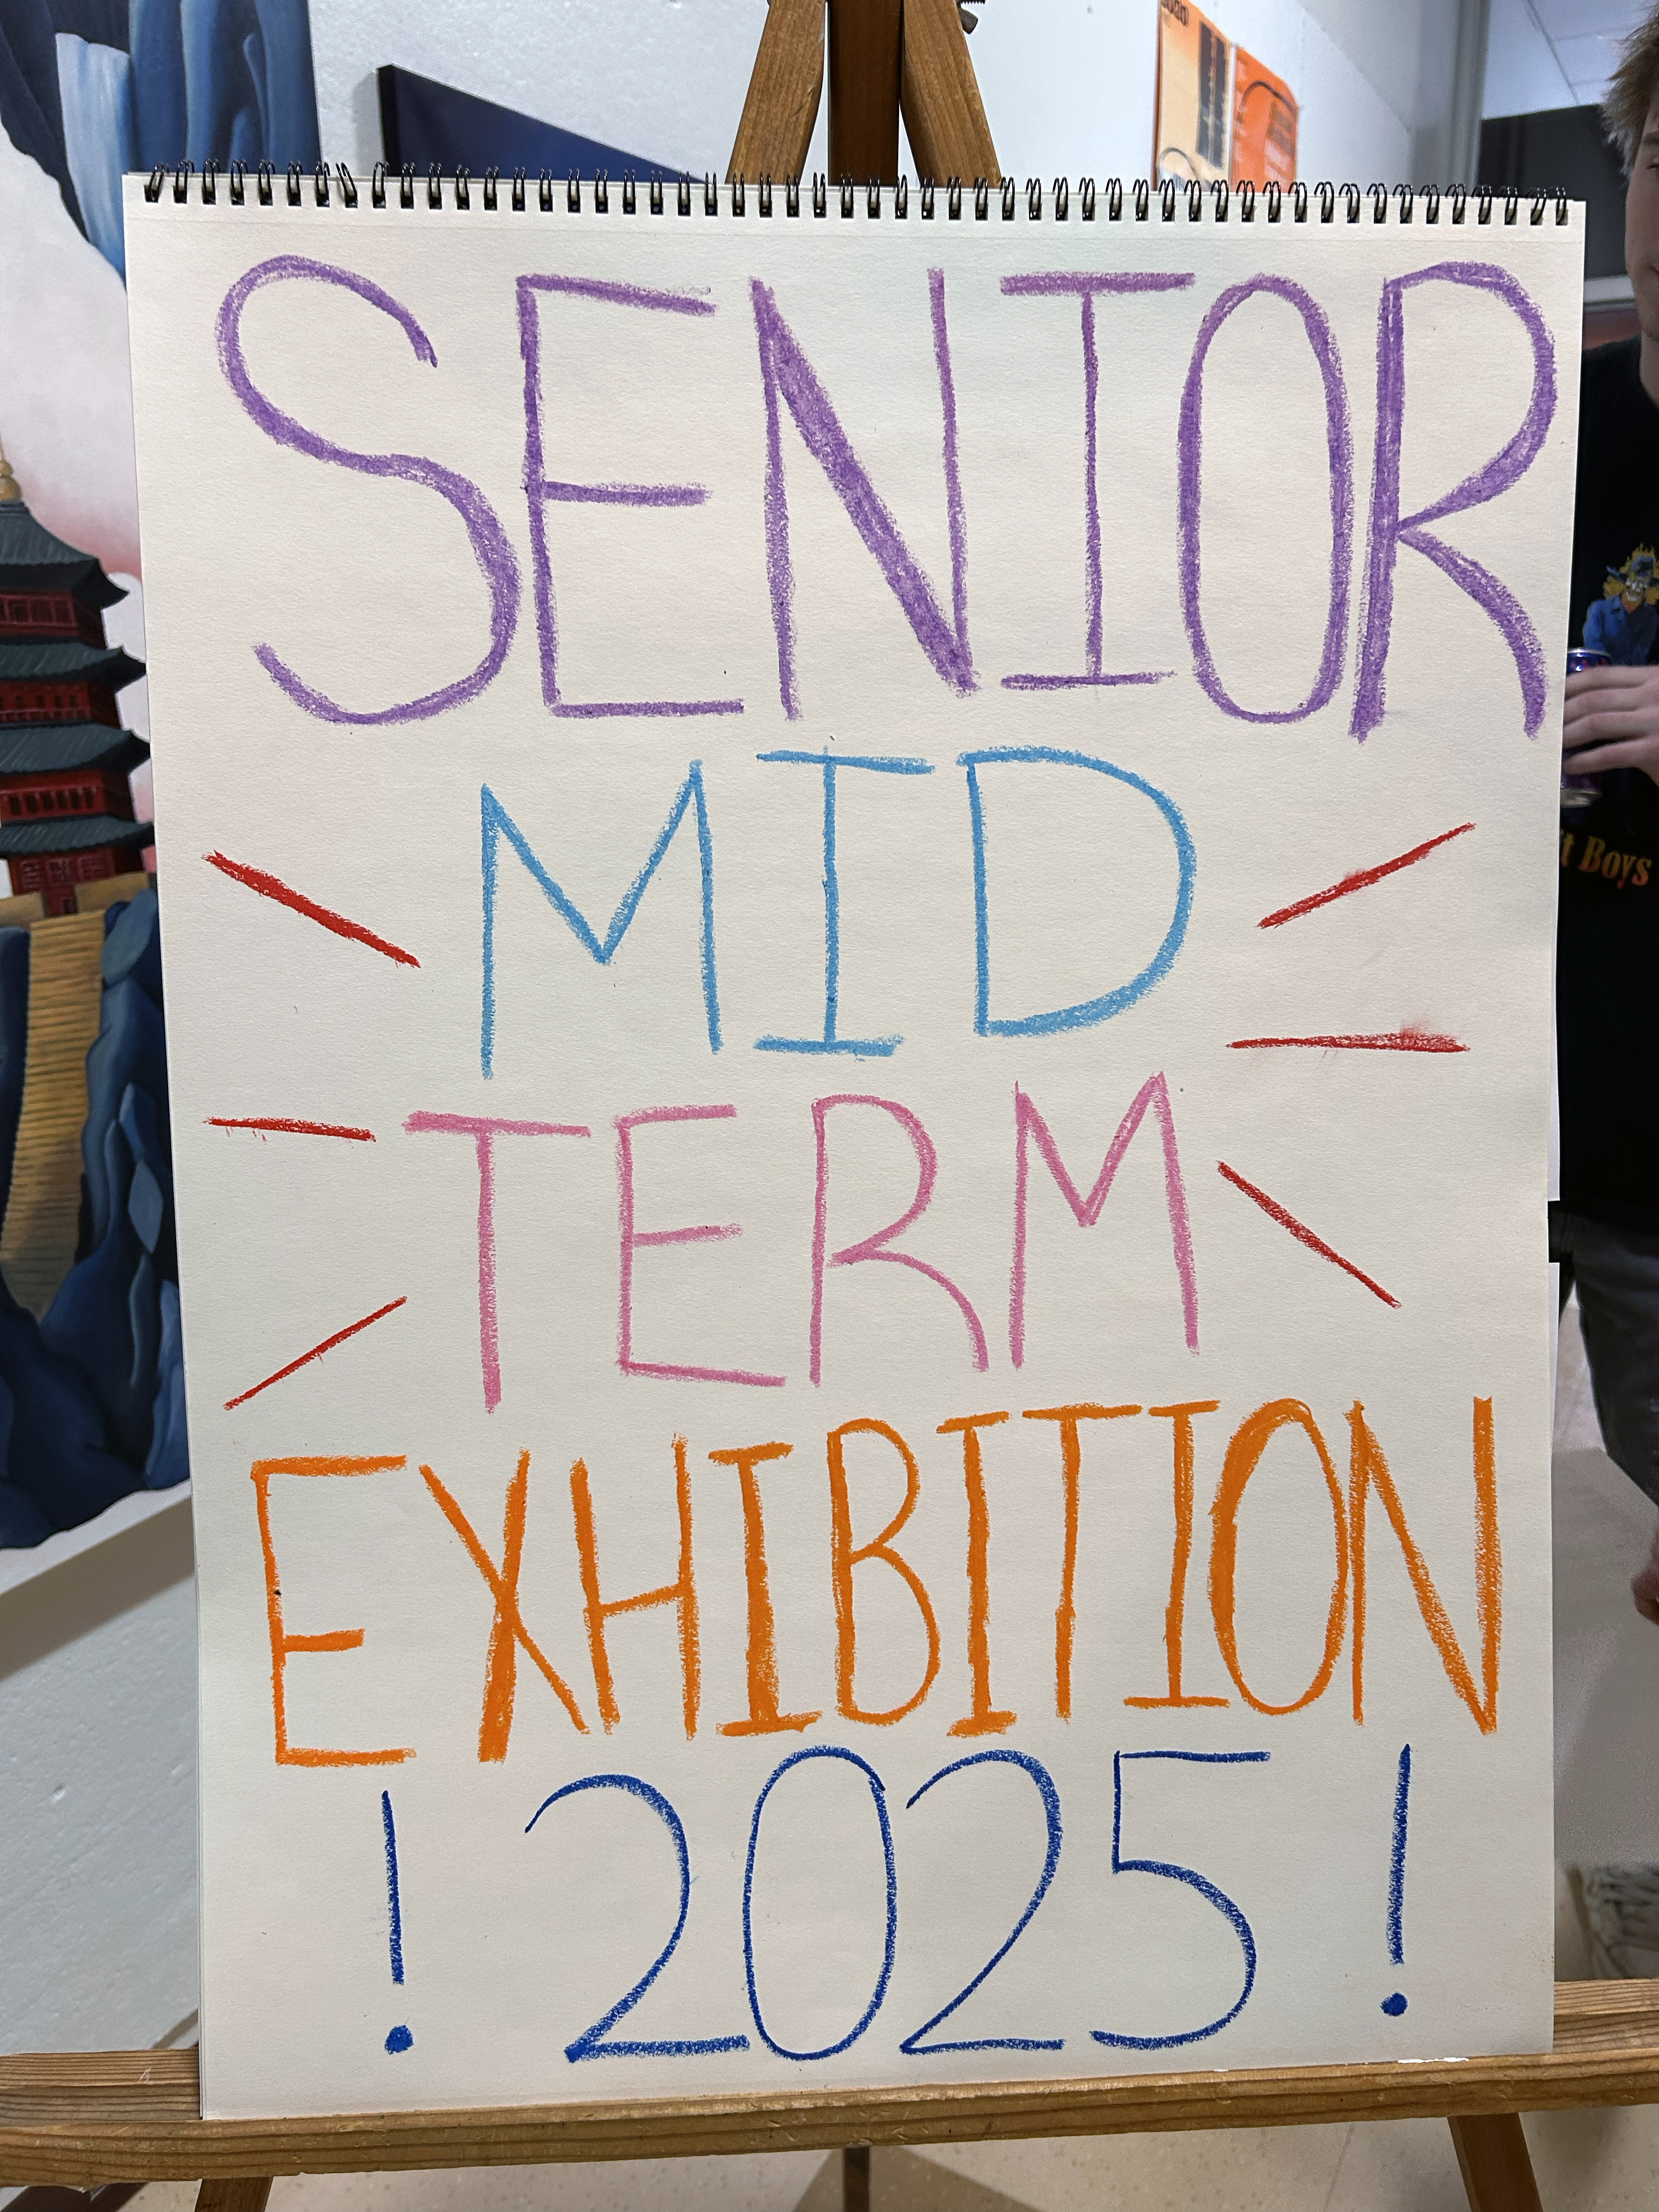 SENIOR
MID
TERM
EXHIBITION
! 2025 !
Boys